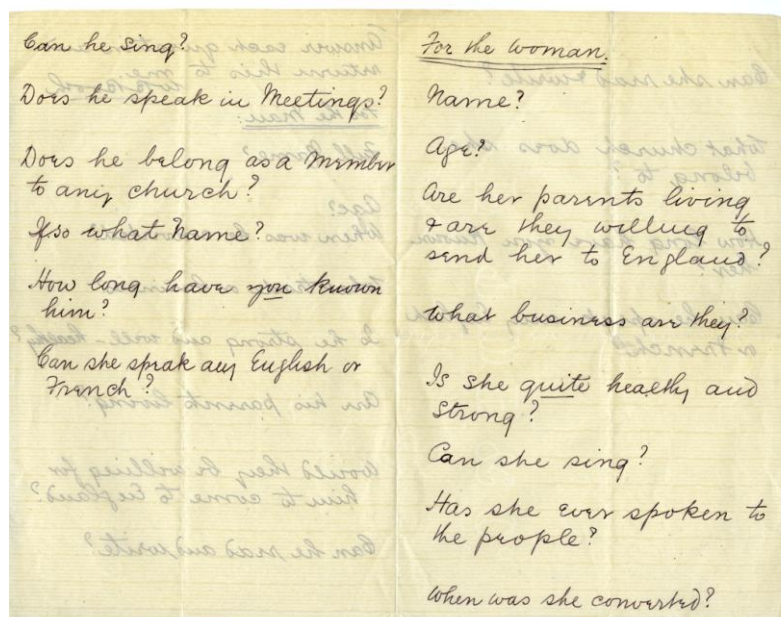 Can he sing?
Does he speak in Meetings?
Does he belong as a Member
to any church?
If so what Name?
How long have you known
him?
Can she speak any English or
French?
For the Woman.
Name?
Age?
Are her parents living
& are they willing to
send her to England?
What business are they?
Is she quite healthy and
strong?
Can she sing?
Has she ever spoken to
the people?
When was she converted?